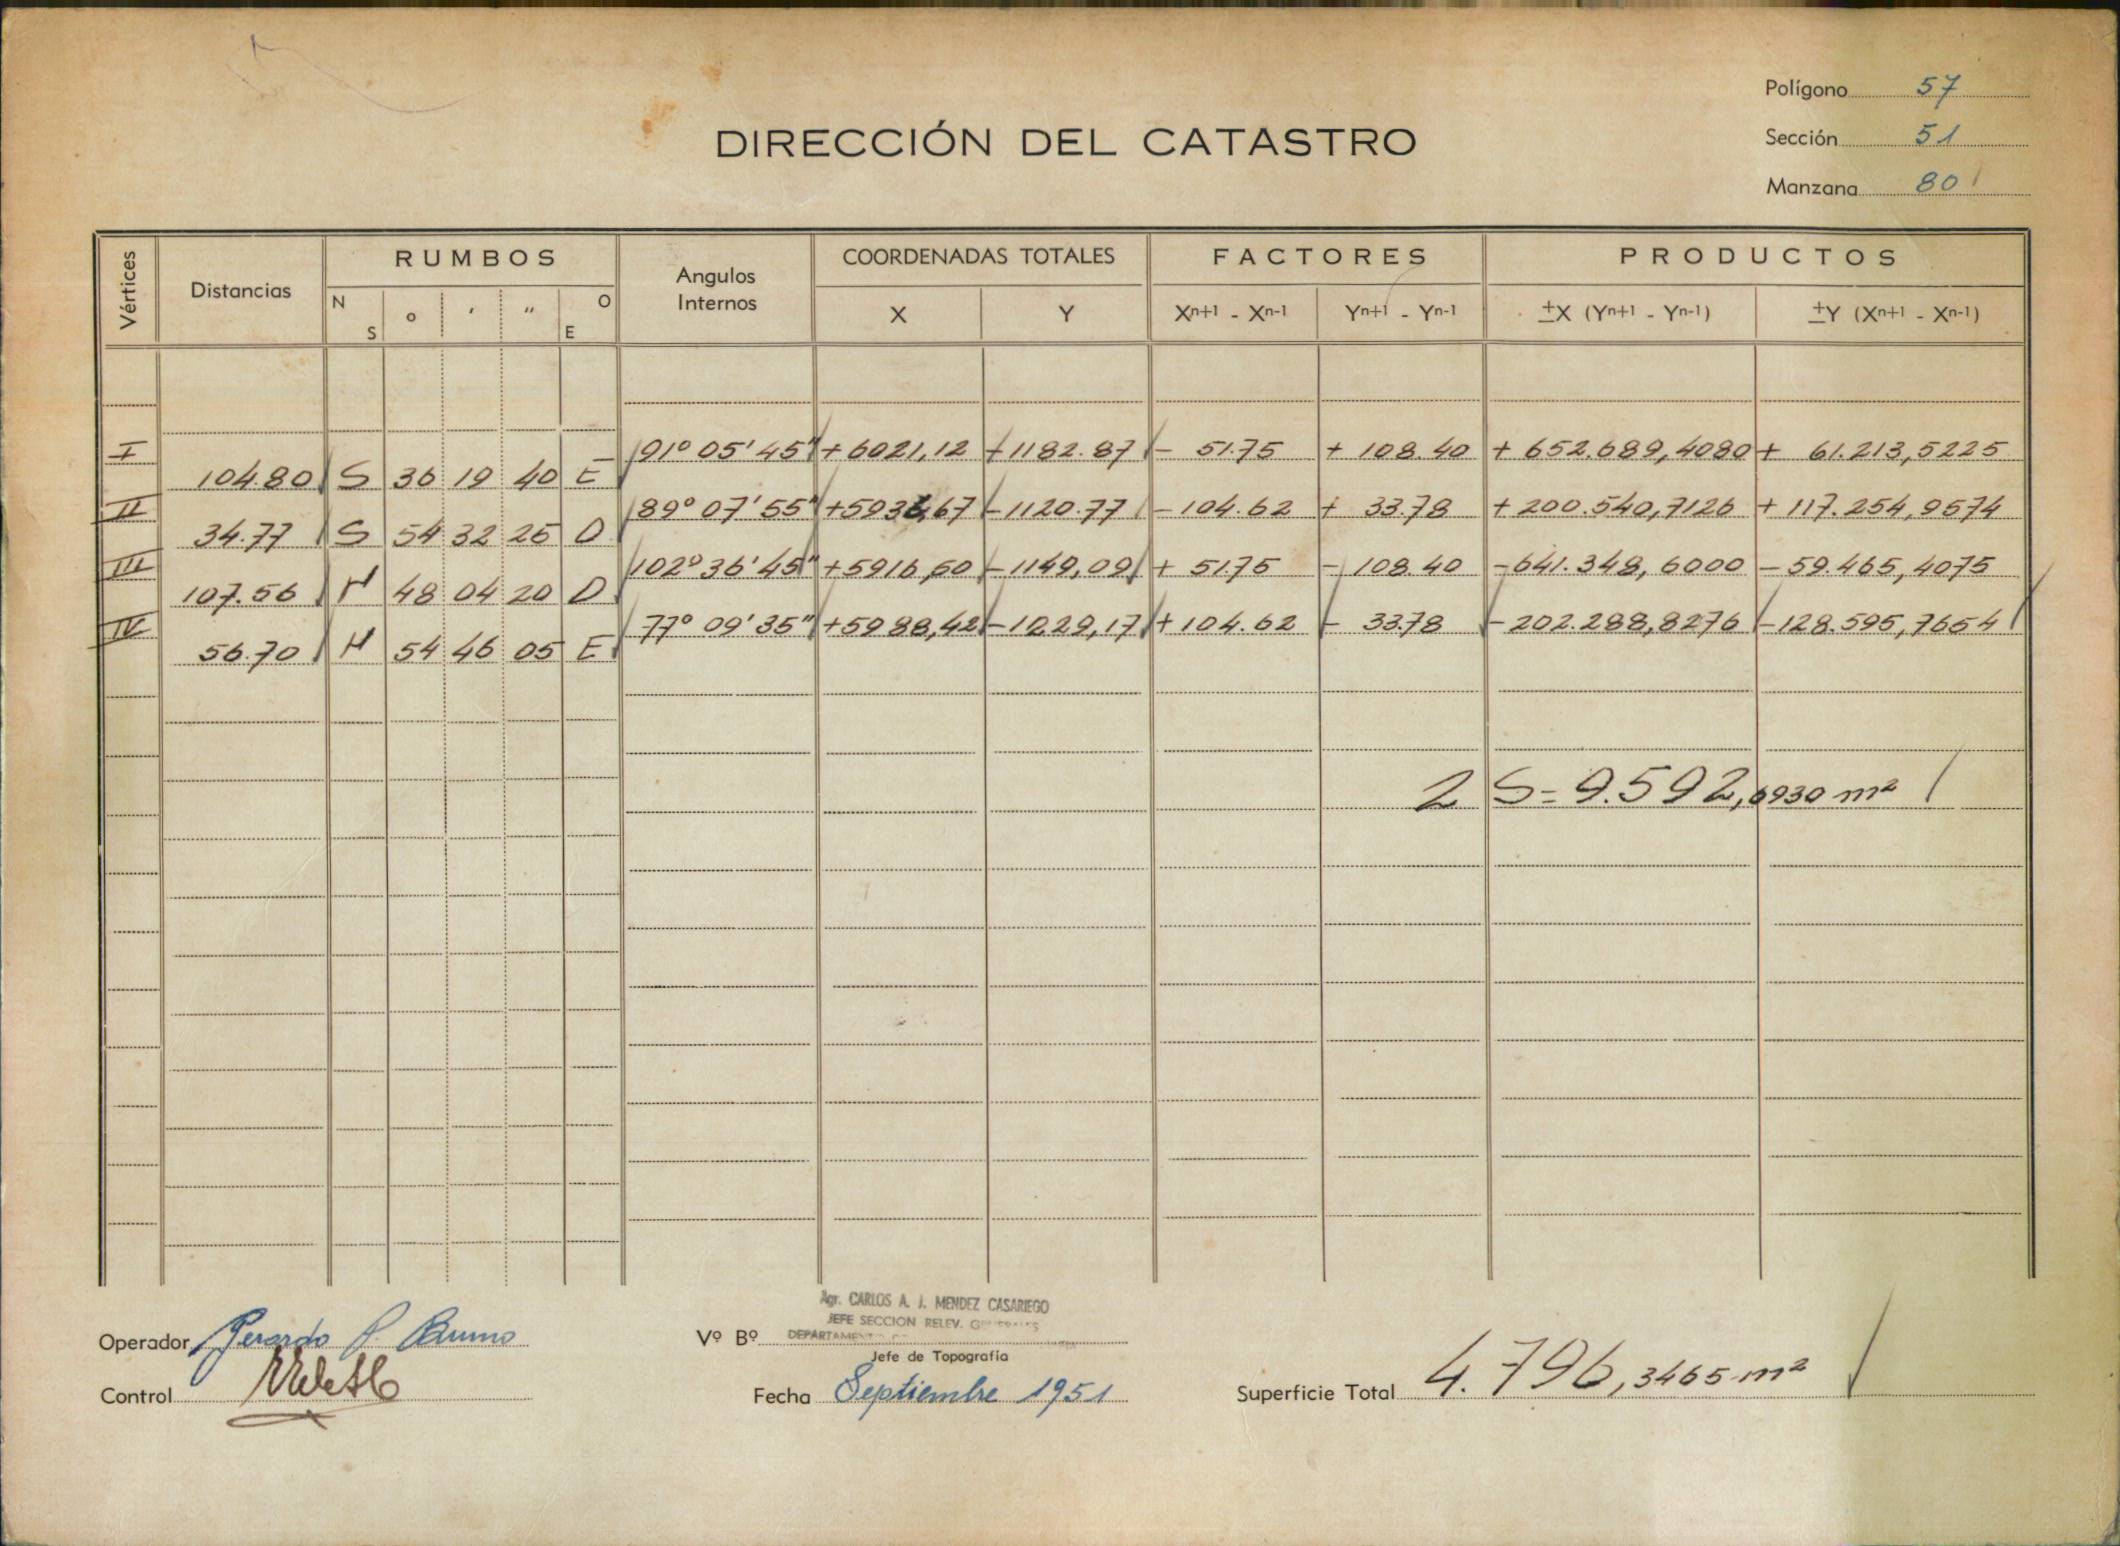 Polígono 57
DIRECCIÓN DEL CATASTRO
Sección 51
Manzana 80
Vértices Distancias RUMBOS N S o ′ ″ O E Angulos Internos COORDENADAS TOTALES X Y FACTORES Xn+1 - Xn-1 Yn+1 - Yn-1 PRODUCTOS ±X (Yn+1 - Yn-1) ±Y (Xn+1 - Xn-1)
I 91° 05' 45" +6021,12 -1182.87 - 51.75 + 108.40 + 652.689,4080 + 61.213,5225
104.80 S 36 19 40 E
II 89° 07' 55" +5936,67 -1120.77 -104.62 + 33.78 + 200.540,7126 + 117.254,9574
34.77 S 54 32 25 O
III 102° 36' 45" +5916,50 -1149,09 + 51.75 - 108.40 -641.348,6000 -59.465,4075
107.56 N 48 04 20 O
IV 77° 09' 35" +5988,42 -1229,17 +104.62 - 33.78 -202.288,8276 -128.595,7654
56.70 N 54 46 05 E
2 S = 9.592,6930 m²
Agr. CARLOS A. J. MENDEZ CASARIEGO
JEFE SECCION RELEV. GENERALES
DEPARTAMENTO DE
Operador Gerardo P. Bruno Vº Bº
Jefe de Topografía
Control Fecha Septiembre 1951 Superficie Total 4.796,3465 m²